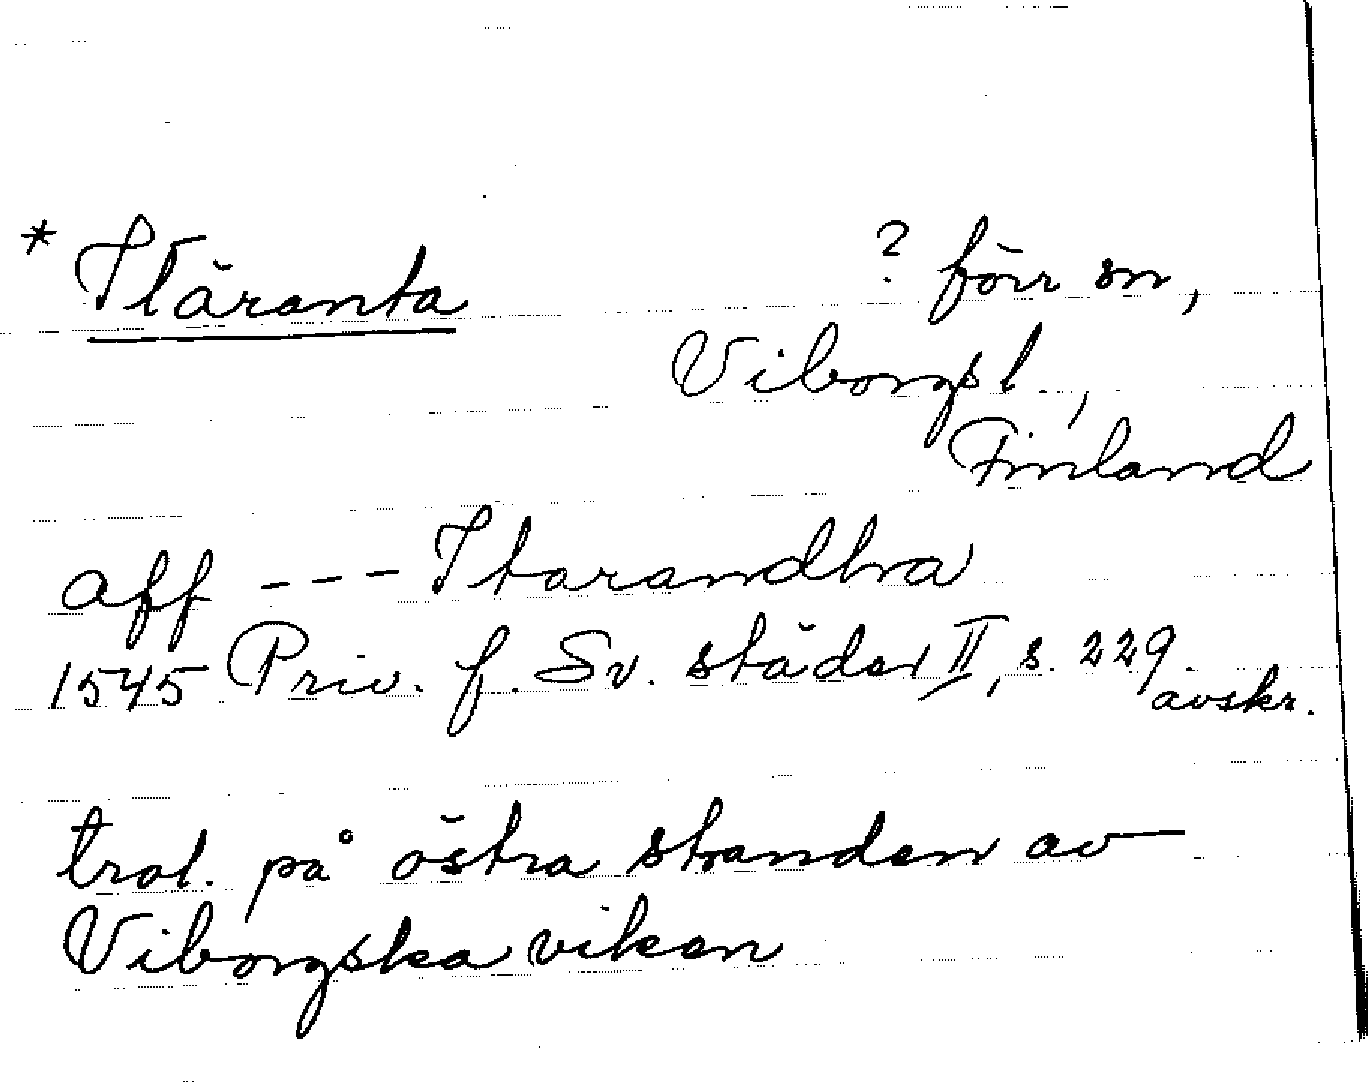 * Itäranta ? förr sn,
Viborgs l.,
Finland
aff --- Itarandhra
1545 Priv. f. Sv. städer II, s. 229.
avskr.
trol. på östra stranden av
Viborgska viken